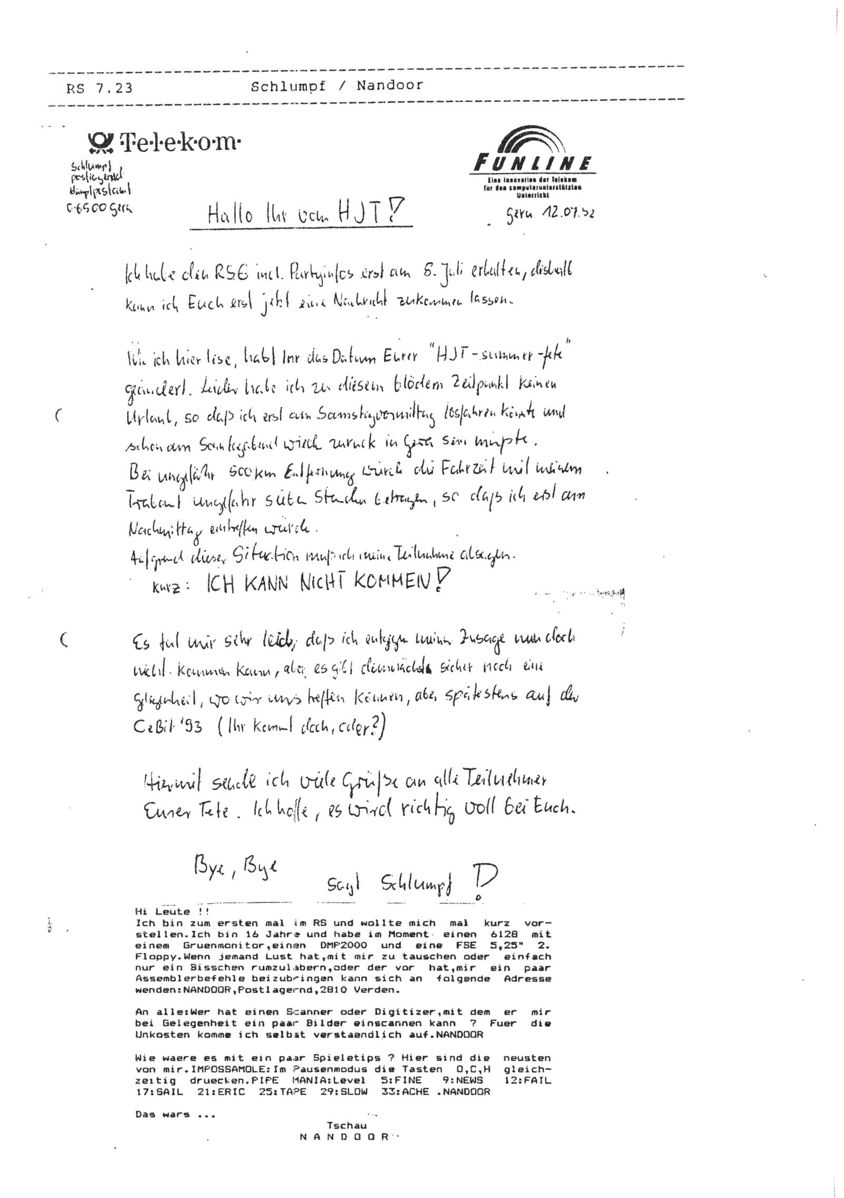 RS 7.23 Schlumpf / Nandoor
Te·l·e·k·o·m·
FUNLINE
Eine Innovation der Telekom
für den computerunterstützten
Unterricht
Schlumpf
postlagernd
Hauptpostamt
O-6500 Gera
Gera 12.07.92
Hallo Ihr vom HJT!
Ich habe den RS6 incl. Partyinfos erst am 8. Juli erhalten, deshalb
kann ich Euch erst jetzt eine Nachricht zukommen lassen.
Wie ich hier lese, habt Ihr das Datum Eurer "HJT-summer-fete"
geändert. Leider habe ich zu diesem blödem Zeitpunkt keinen
Urlaub, so daß ich erst am Samstagvormittag losfahren könnte und
schon am Sonntagabend wieder zurück in Gera sein müßte.
Bei ungefähr 500km Entfernung würde die Fahrzeit mit meinem
Trabant ungefähr sieben Stunden betragen, so daß ich erst am
Nachmittag eintreffen würde.
Aufgrund dieser Situation muß ich meine Teilnahme absagen.
kurz: ICH KANN NICHT KOMMEN!
Es tut mir sehr leid, daß ich entgegen meiner Zusage nun doch
nicht kommen kann, aber es gibt demnächst sicher noch eine
Gelegenheit, wo wir uns treffen können, aber spätestens auf der
CeBit '93 (Ihr kommt doch, oder?)
Hiermit sende ich viele Grüße an alle Teilnehmer
Eurer Fete. Ich hoffe, es wird richtig voll bei Euch.
Bye, Bye
sagt Schlumpf !
Hi Leute !!
Ich bin zum ersten mal im RS und wollte mich mal kurz vor-
stellen.Ich bin 16 Jahre und habe im Moment einen 6128 mit
einem Gruenmonitor,einen DMP2000 und eine FSE 5,25" 2.
Floppy.Wenn jemand Lust hat,mit mir zu tauschen oder einfach
nur ein Bisschen rumzulabern,oder der vor hat,mir ein paar
Assemblerbefehle beizubringen kann sich an folgende Adresse
wenden:NANDOOR,Postlagernd,2810 Verden.
An alle:Wer hat einen Scanner oder Digitizer,mit dem er mir
bei Gelegenheit ein paar Bilder einscannen kann ? Fuer die
Unkosten komme ich selbst verstaendlich auf.NANDOOR
Wie waere es mit ein paar Spieletips ? Hier sind die neusten
von mir.IMPOSSAMOLE:Im Pausenmodus die Tasten O,C,H gleich-
zeitig druecken.PIPE MANIA:Level 5:FINE 9:NEWS 12:FAIL
17:SAIL 21:ERIC 25:TAPE 29:SLOW 33:ACHE .NANDOOR
Das wars ...
Tschau
N A N D O O R